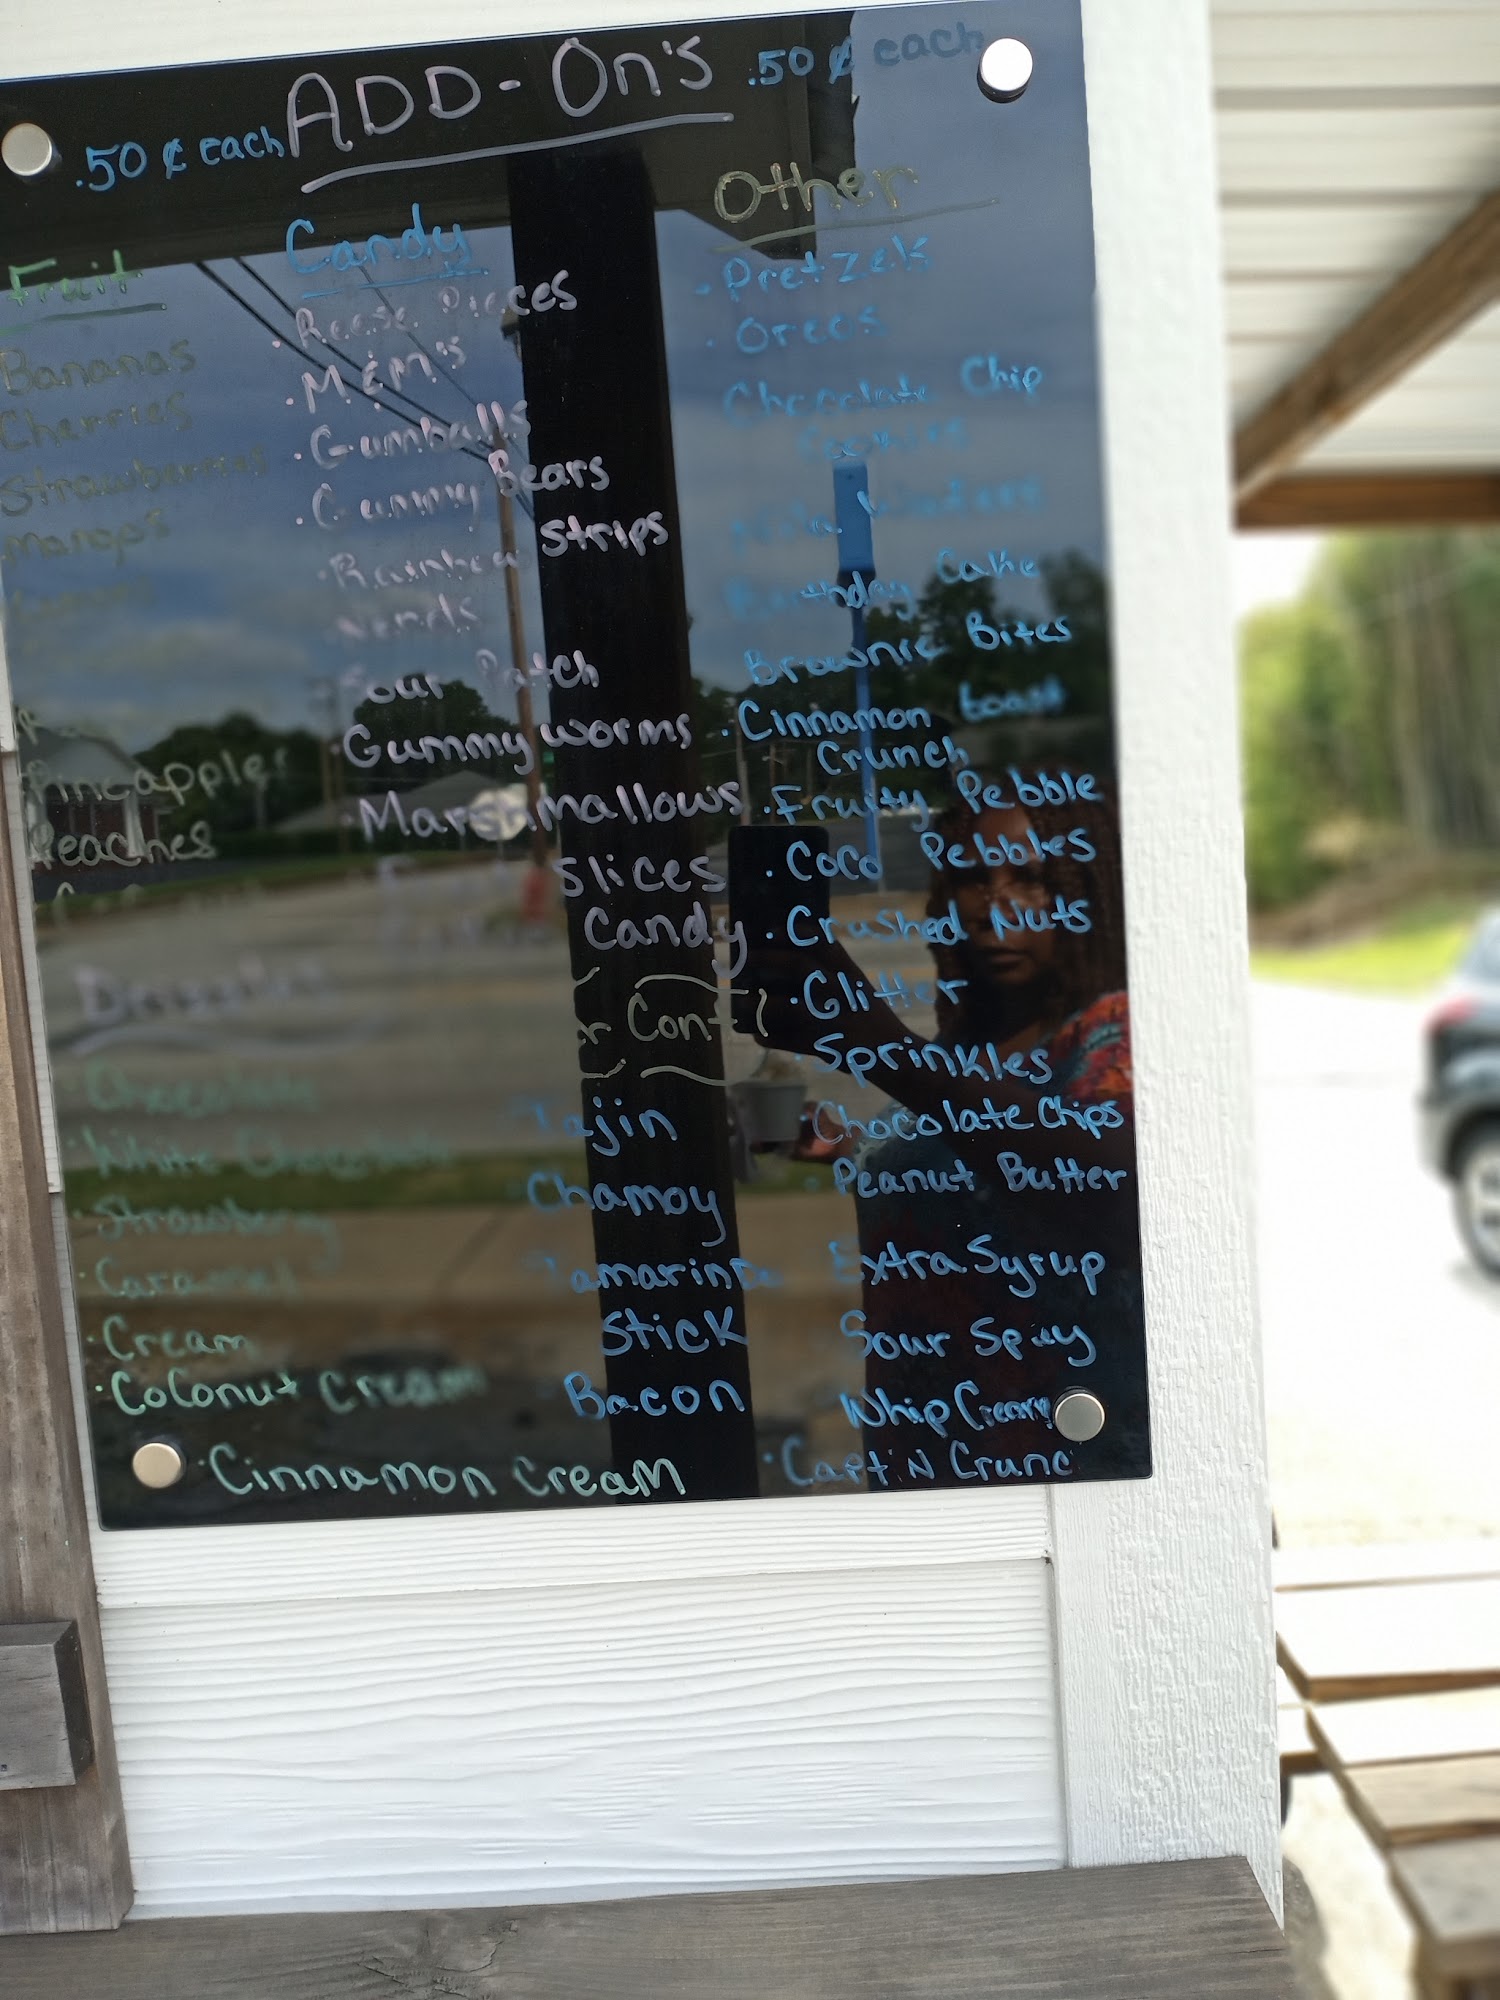 ADD-On's
.50 ¢ each
.50 ¢ each
Fruit
Bananas
Cherries
Strawberries
Mangos
Pineapples
Peaches
Candy
• Reese Pieces
• M&M's
• Gumballs
• Gummy Bears
• Rainbow Strips
Nerds
Sour Patch
Gummy worms
• Marshmallows
Slices
Candy
Other
• Pretzels
• Oreos
Chocolate Chip
Cookies
Birthday Cake
Brownie Bites
• Cinnamon toast
Crunch
• Fruity Pebble
• CoCo Pebbles
• Crushed Nuts
• Glitter
• Sprinkles
• Chocolate Chips
• Peanut Butter
Extra Syrup
Sour Spray
Whip Cream
• Capt'N Crunc
Cont
Tajin
• Chamoy
Stick
Bacon
Chocolate
• White Chocolate
• Strawberry
• Caramel
• Cream
• CoConut Cream
• Cinnamon Cream